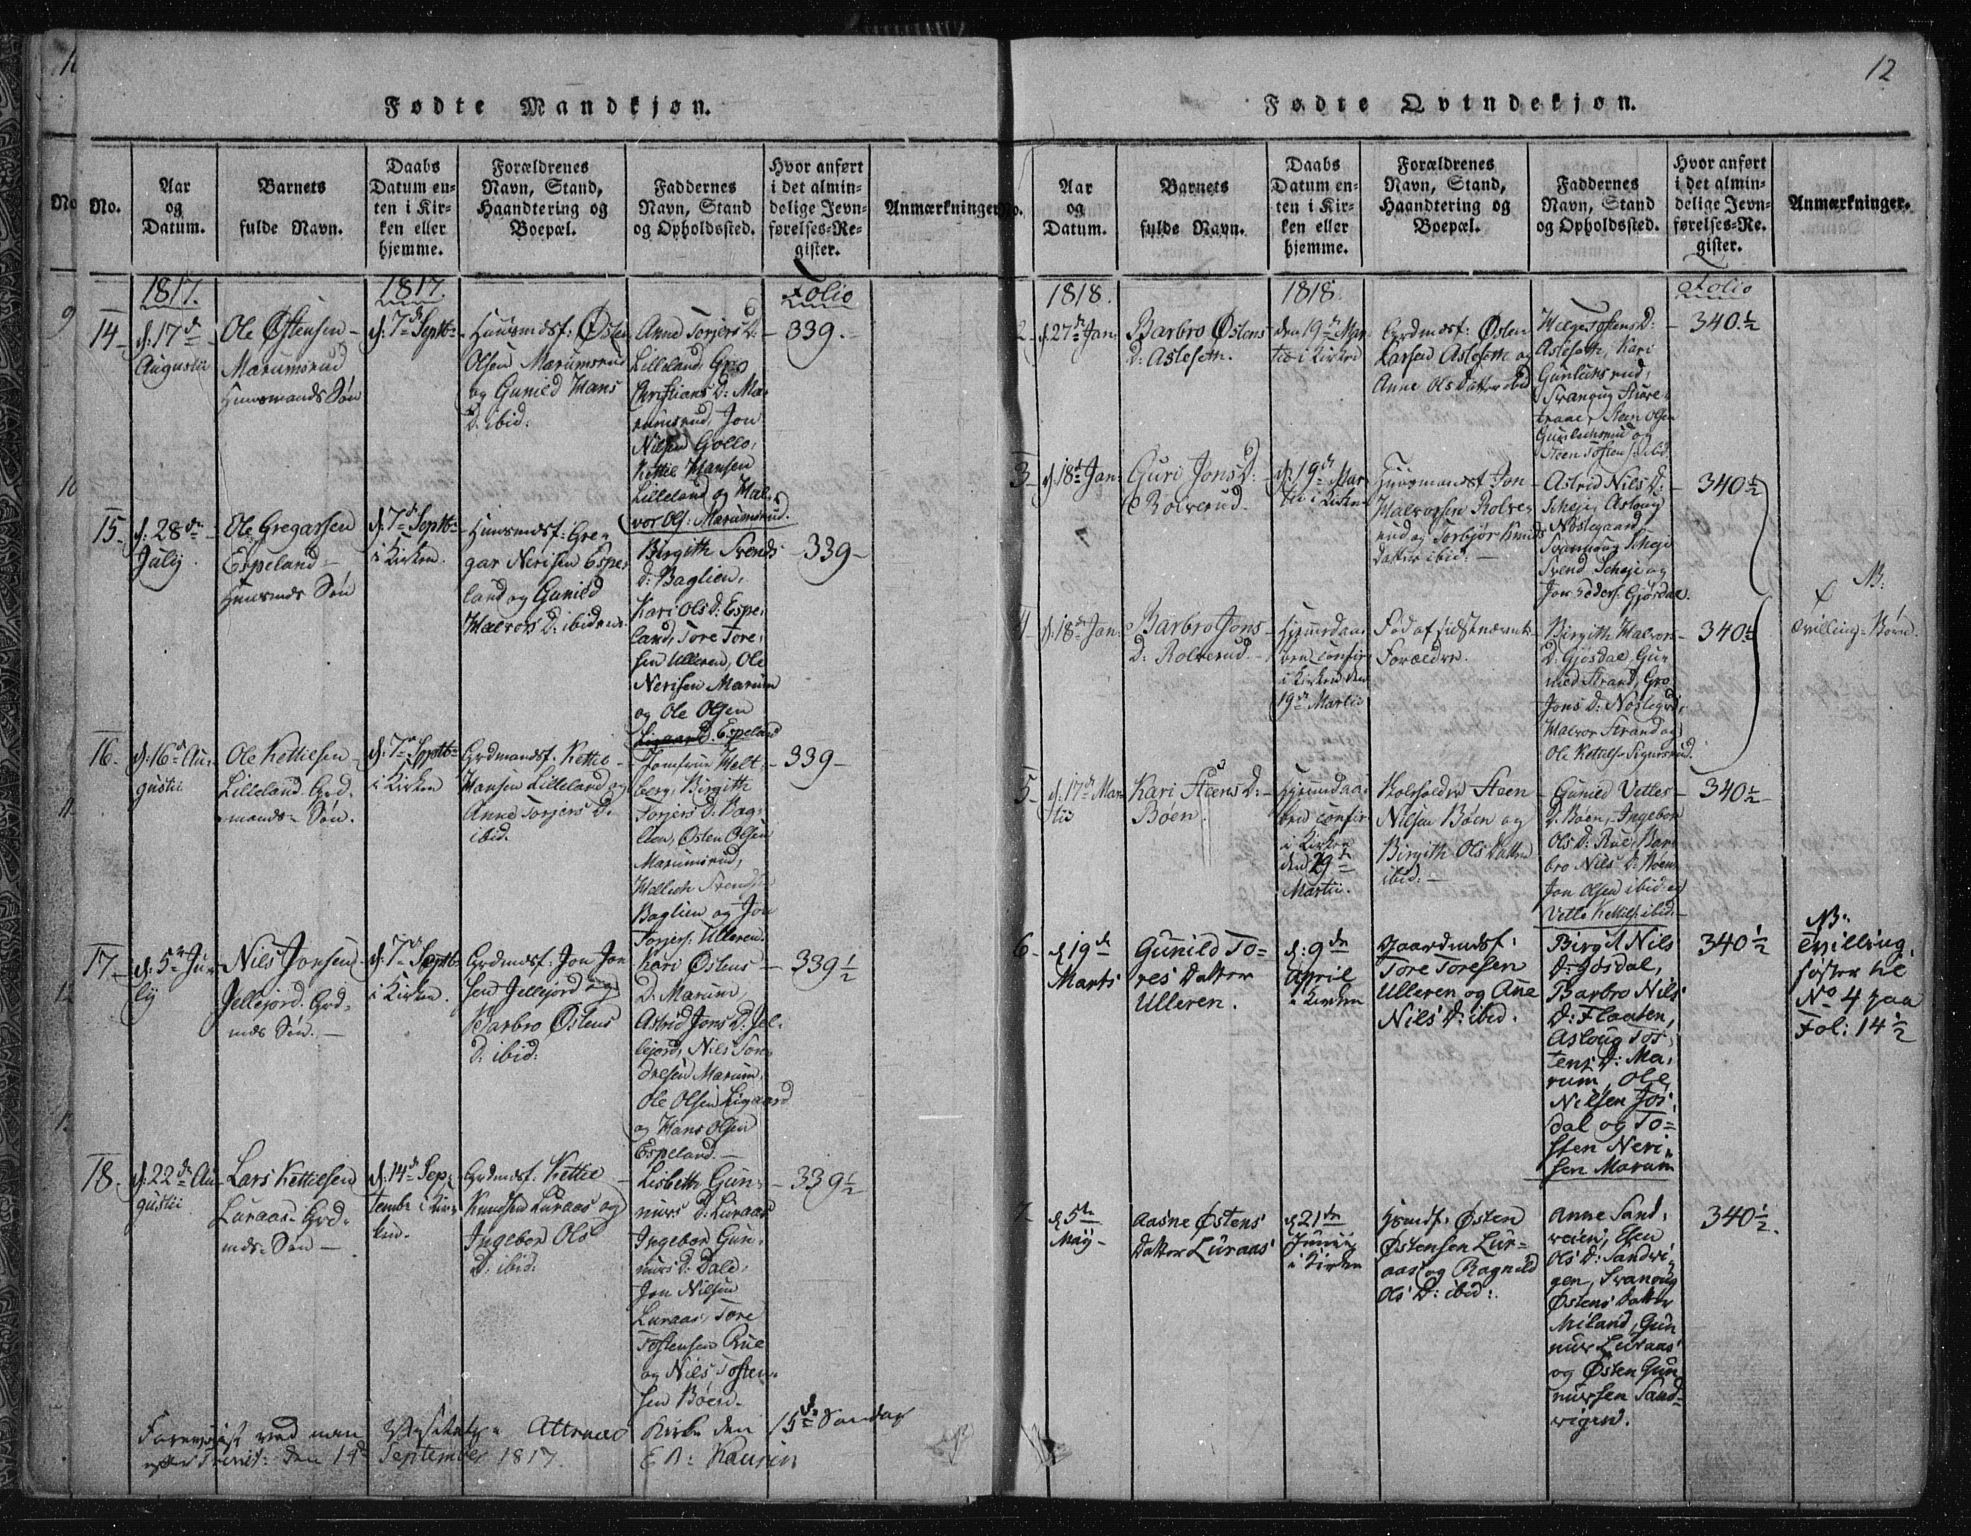 12
Fødte Mandkjøn.
No.
Aar
og
Datum.
Barnets
fulde Navn.
Daabs
Datum en-
ten i Kir-
ken eller
hjemme.
Forældrenes
Navn, Stand,
Haandtering og
Boepæl.
Faddernes
Navn, Stand
og Opholdssted.
Hvor anført
i det almin-
delige Jevn-
førelses-Re-
gister.
Anmærkninger
1817.
1817.
Folio
14
d: 17de
Augustii
Ole Østensen
Marumsrud
Huusmands Søn
d: 7de Septb:
Huusmdsf: Østen
Olsen Marumsrud
og Gunild Hans
D: ibid:
Anne Torjers D:
Lilleland, Gro
Christians D: Ma-
rumsrud, Jon
Nilsen Gollo,
Kettil Hansen
Lilleland og Hal-
vor Ols: Marumsrud.
339.
15
d: 28de
July
Ole Gregarsen
Espeland
Huusmds Søn
d: 7de Septb:
i Kirken.
Huusmdsf: Gre-
gar Nerisen Espe-
land og Gunild
Halvors D: ibidem.
Birgith Svends
D: Baglien,
Kari Ols D: Espe-
land, Tore Tore-
sen Ulleren, Ole
Nerisen Marum
og Ole Olsen
Ligaard. Espeland
339
16
d: 16de Au-
gustii
Ole Kettilsen
Lilleland. Grd-
mands Søn.
d: 7de Septb:
i Kirken
Grdmandsf. Kettil
Hansen Lilleland og
Anne Torjers D:
ibid.
Jomfrue Welt-
berg, Birgith
Torjers D: Bag-
lien, Østen Olsen
Marumsrud,
Svends
Baglien og Jon
Torjers: Ulleren.
339
17
d: 5te Ju-
ly
Nils Jonsen
Jellejord. Grd-
mds Søn.
d: 7de Septb:
i Kirken.
Grdmdsf: Jon Jon-
sen Jellejord og
Barbro Østens
D: ibid:
Kari Østens
D: Marum,
Astrid Jons D: Jel-
lejord, Nils Son-
dresen Marum,
Ole Olsen Ligaard
og Hans Olsen
Espeland.
339 1/2
18
d: 22de Au-
gustii
Lars Kettilsen
Luraas. Grd-
mds: Søn
d: 14de Sep-
tembr i Kir-
ken.
Grdmdsf. Kettil
Knudsen Luraas og
Ingebor Ols
D: ibid:
Lisbeth Gun-
nurs D: Luraas
Ingebor Gun-
nurs D: Dale,
Jon Nilsen
Luraas, Tore
Tostensen Rue
og Nils Tosten-
sen Bøen.
339 1/2
ved min Attraae Kirke den 15de Søndag
den 14de September 1817. Kaurin
Fødte Qvindekjøn.
No.
Aar
og
Datum.
Barnets
fulde Navn.
Daabs
Datum en-
ten i Kir-
ken eller
hjemme.
Forældrenes
Navn, Stand,
Haandtering og
Boepæl.
Faddernes
Navn, Stand
og Opholdssted.
Hvor anført
i det almin-
delige Jevn-
førelses-Re-
gister.
Anmærkninger.
1818.
1818.
Folio
2
d: 27de Jan:
Barbro Østens
D: Aslesett.
den 19de Mar-
tii i Kirken
Grdmdsf: Østen
Larsen Aslesett og
Anne Ols Datter ibid
Helge Ostens D:
Aslesett, Kari
Gunleiksrud,
Svanoug
Steen Olsen
Gunleiksrud og
Steen Tostens: ibid
340 1/2
3
d: 18de Jan:
Guri Jons D:
Rolverud.
d: 19de Mar-
tii i Kirken
Huusmandsf. Jon
Halvorsen Rolve-
rud og Torbjør Knuds
Datter ibid:
Astrid Nils D:
Scheje, Asloug
Noslegaard,
Svanoug Scheje
Svend Scheje og
Jon Gjøsdal.
340 1/2
4
d: 18de Jan:
Barbro Jons
D: Rolverud
Hjemmedaa-
i Kirken den
19de Martii
Fød af sidstnævnte
Forældre.
Birgith Halvors
D: Gjøsdal, Gun-
ned Strand, Gro
Jons D: Noslegrd,
Halvor Strand og
Ole Kettils: Sigursrud.
340 1/2
NB:
Tvilling-Børn.
5
d: 17de Mar-
tii
Kari Steens D:
Bøen.
Hjemmedaa-
i Kirken
den 29de
Martii.
Steen
Nilsen Bøen og
Birgith Ols Datter
ibid:
Gunild Vetles
D: Bøen, Ingebor
Ols D: Rue, Bar-
bro Nils D: Bøen
Jon Olsen ibid: og
Vetle Kettils: ibid:
340 1/2
6
d 19de
Marts
Gunild To-
res Datter
Ulleren.
d: 9de
April
i Kirken
Gaardmdsf:
Tore Toresen
Ulleren og Ane
Nils D: ibid.
Birgit Nils
D: Jøsdal,
Barbro Nils
D: Flaaten,
Asloug Tos-
tens D: Ma-
rum, Ole
Nilsen Jøs-
dal og To-
sten Neri-
sen Marum
340 1/2
NB:
Tvilling-
søster til
No 4 paa
Fol: 14 1/2
7
d 5te
May
Aasne Østens
Datter Luraas
d 21de
Junii
i Kirken
Hsmdf: Østen
Østensen Lur-
aas og Ragnild
Ols D: ibid:
Anne Sand-
veien, Elen
Ols D: Sandvi-
gen, Svanoug
Østens Datter
Miland, Gun-
nur Luraas
og Østen Gun-
nursen Sand-
vigen.
340 1/2